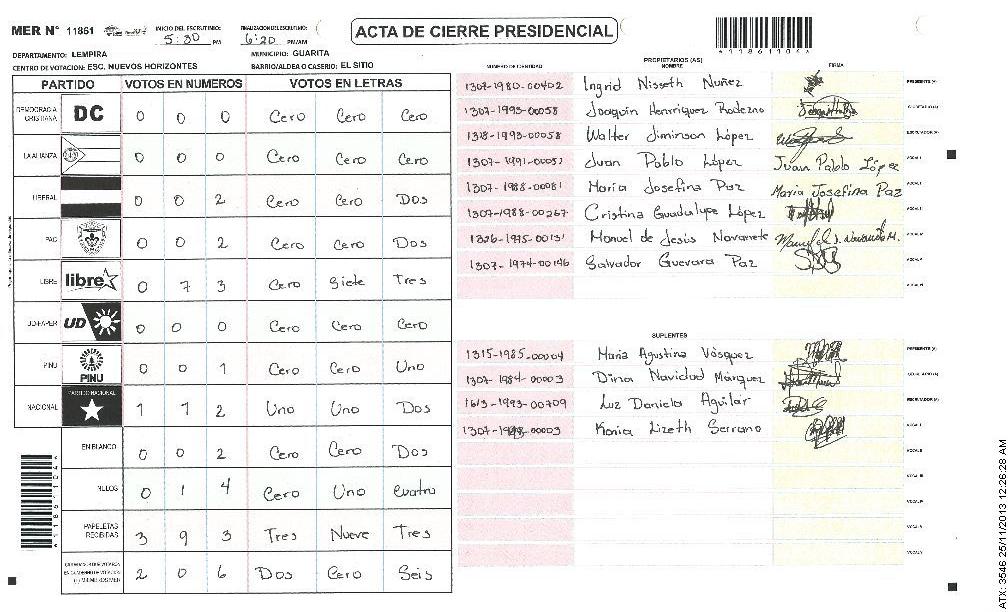 MER N° 11861 INICIO DEL ESCRUTINIO: 5:30 PM FINALIZACION DEL ESCRUTINIO: 6:20 PM/AM
ACTA DE CIERRE PRESIDENCIAL
DEPARTAMENTO: LEMPIRA MUNICIPIO: GUARITA
CENTRO DE VOTACION: ESC. NUEVOS HORIZONTES BARRIO/ALDEA O CASERIO: EL SITIO
PARTIDO VOTOS EN NUMEROS VOTOS EN LETRAS
DEMOCRACIA CRISTIANA DC 0 0 0 Cero Cero Cero
LA ALIANZA 0 0 0 Cero Cero Cero
LIBERAL 0 0 2 Cero Cero Dos
PAC 0 0 2 Cero Cero Dos
LIBRE libre 0 7 3 Cero Siete Tres
UD-FAPER UD 0 0 0 Cero Cero Cero
PINU PINU 0 0 1 Cero Cero Uno
NACIONAL PARTIDO NACIONAL 1 1 2 Uno Uno Dos
EN BLANCO 0 0 2 Cero Cero Dos
NULOS 0 1 4 Cero Uno Cuatro
PAPELETAS RECIBIDAS 3 9 3 Tres Nueve Tres
2 0 6 Dos Cero Seis
PROPIETARIOS (AS)
NUMERO DE IDENTIDAD NOMBRE FIRMA
1307-1980-00402 Ingrid Nisseth Nuñez PRESIDENTE (A)
1307-1993-00058 Joaquin Henrriquez Rodezno SECRETARIO (A)
1318-1993-00058 Walter Jiminson López ESCRUTADOR (A)
1307-1991-00051 Juan Pablo López Juan Pablo López VOCAL I
1307-1988-00081 Maria Josefina Paz Maria Josefina Paz
1307-1988-00267 Cristina Guadalupe López
1326-1975-00131 Manuel de Jesús Navarrete
1307-1974-00146 Salvador Guevara Paz
SUPLENTES
1315-1985-00004 Maria Agustina Vásquez PRESIDENTE (A)
1307-1984-00003 Dina Navidad Márquez SECRETARIO (A)
1613-1993-00709 Luz Daniela Aguilar ESCRUTADOR (A)
Kenia Lizeth Serrano VOCAL I
ATX: 3546 25/11/2013 12:26:28 AM